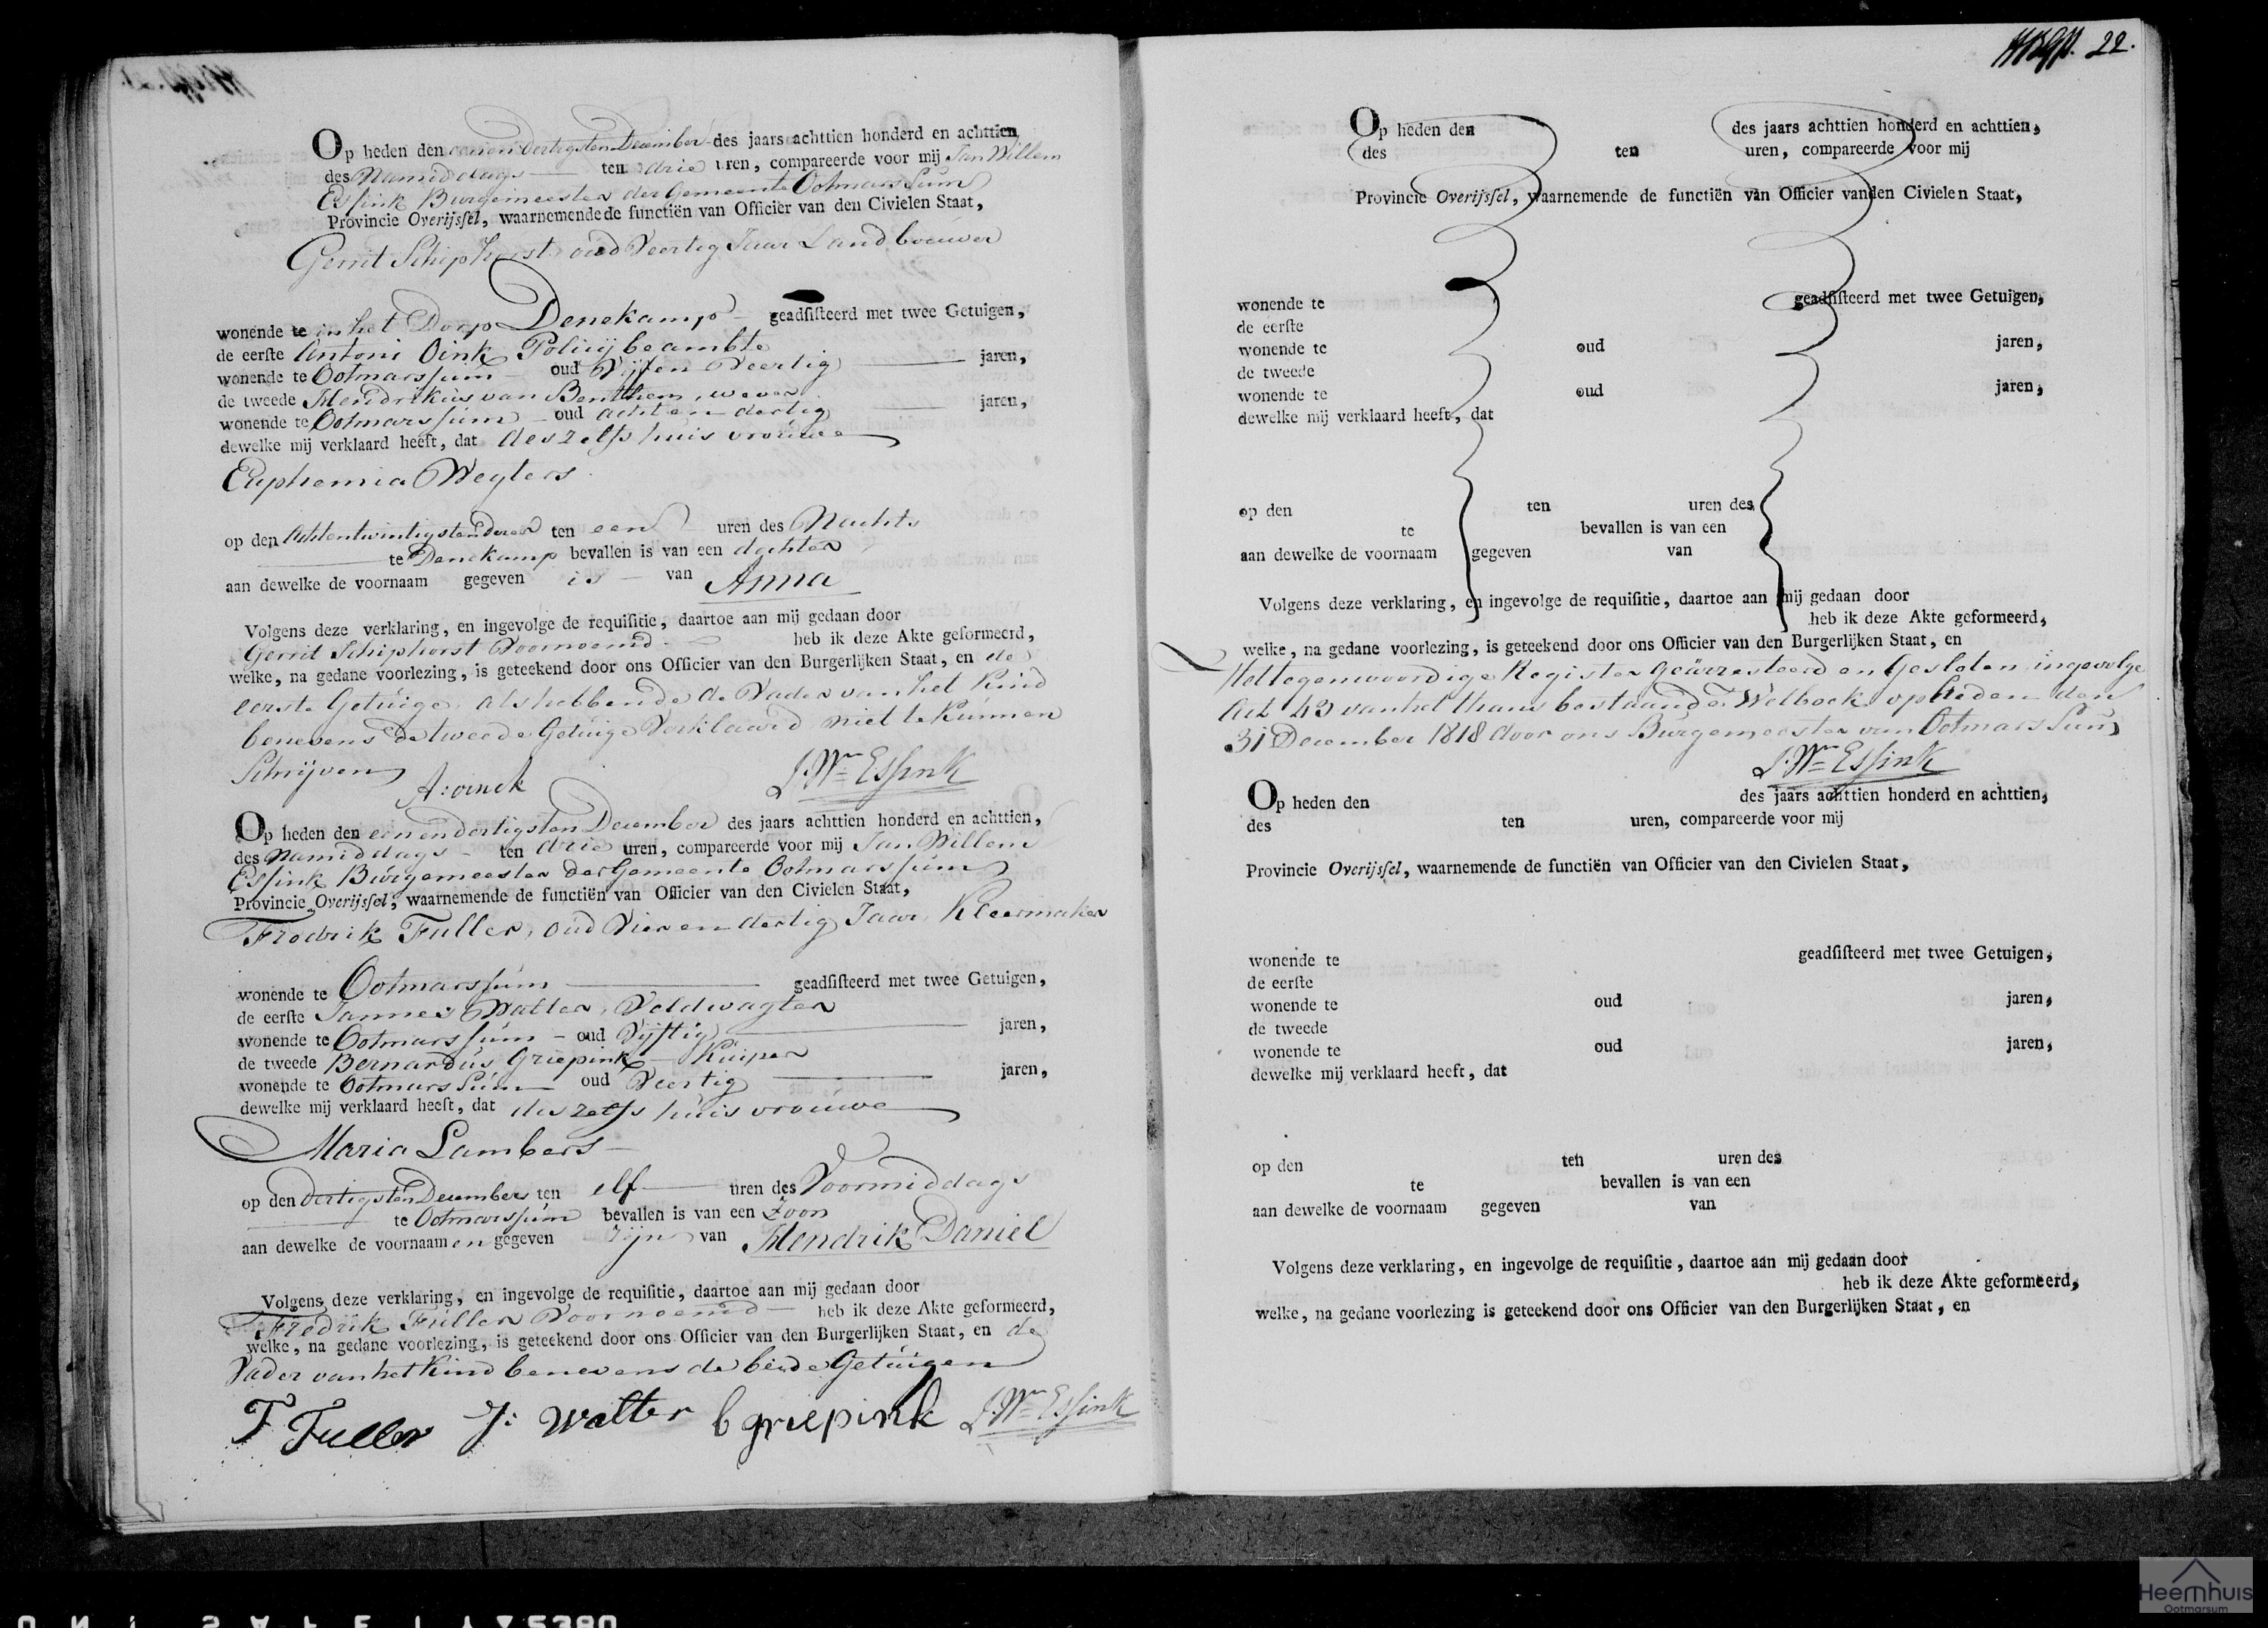 Op heden den eenendertigsten December des jaars achttien honderd en achttien
des Namiddags ten drie uren, compareerde voor mij Jan Willem
Essink Burgemeester der Gemeente Ootmarssum
Provincie Overijssel, waarnemende de functiën van Officier van den Civielen Staat,
Gerrit Schiphorst oud Veertig Jaar Landbouwer
wonende te in het Dorp Denekamp geadsisteerd met twee Getuigen,
de eerste Antoni Oink Policij beambte
wonende te Ootmarssum oud Vijf en Veertig jaren,
de tweede Hendrikus van Benthem, wever
wonende te Ootmarssum oud acht en dertig jaren,
dewelke mij verklaard heeft, dat deszelfs huisvrouwe
Euphemia Wegters
op den Achtentwintigsten dezer ten een uren des Nachts
te Denekamp bevallen is van een dochter
aan dewelke de voornaam gegeven is van Anna
Volgens deze verklaring, en ingevolge de requisitie, daartoe aan mij gedaan door
Gerrit Schiphorst Voornoemd heb ik deze Akte geformeerd,
welke, na gedane voorlezing, is geteekend door ons Officier van den Burgerlijken Staat, en de
eerste Getuige, als hebbende de Vader van het Kind
benevens de tweede Getuige Verklaard niet te kunnen
Schrijven
A: oinck J. Wm Essink
Op heden den eenendertigsten December des jaars achttien honderd en achttien,
des Namiddags ten drie uren, compareerde voor mij Jan Willem
Essink Burgemeester der Gemeente Ootmarssum
Provincie Overijssel, waarnemende de functiën van Officier van den Civielen Staat,
Fredrik Fuller, oud Vier en dertig Jaar, Kleermaker
wonende te Ootmarssum geadsisteerd met twee Getuigen,
de eerste Jannes Walter, Veldwagter
wonende te Ootmarssum oud Vijftig jaren,
de tweede Bernardus Griepink Kuiper
wonende te Ootmarssum oud Veertig jaren,
dewelke mij verklaard heeft, dat deszelfs huisvrouwe
Maria Lambers
op den dertigsten December ten elf uren des Voormiddags
te Ootmarssum bevallen is van een zoon
aan dewelke de voornaam en gegeven zijn van Hendrik Daniel
Volgens deze verklaring, en ingevolge de requisitie, daartoe aan mij gedaan door
Fredrik Fuller Voornoemd heb ik deze Akte geformeerd,
welke, na gedane voorlezing, is geteekend door ons Officier van den Burgerlijken Staat, en de
Vader van het Kind benevens de beide Getuigen
F Fuller J: Walter b griepink J. Wm Essink
22.
Op heden den des jaars achttien honderd en achttien,
des ten uren, compareerde voor mij
Provincie Overijssel, waarnemende de functiën van Officier van den Civielen Staat,
wonende te geadsisteerd met twee Getuigen,
de eerste
wonende te oud jaren,
de tweede
wonende te oud jaren,
dewelke mij verklaard heeft, dat
op den ten uren des
te bevallen is van een
aan dewelke de voornaam gegeven van
Volgens deze verklaring, en ingevolge de requisitie, daartoe aan mij gedaan door
heb ik deze Akte geformeerd,
welke, na gedane voorlezing, is geteekend door ons Officier van den Burgerlijken Staat, en
Het tegenwoordige Register Geärresteerd en Gesloten ingevolge
Art 43 van het thans bestaande Wetboek op heden den
31 December 1818 door ons Burgemeester van Ootmarssum
J. Wm Essink
Op heden den des jaars achttien honderd en achttien,
des ten uren, compareerde voor mij
Provincie Overijssel, waarnemende de functiën van Officier van den Civielen Staat,
wonende te geadsisteerd met twee Getuigen,
de eerste
wonende te oud jaren,
de tweede
wonende te oud jaren,
dewelke mij verklaard heeft, dat
op den ten uren des
te bevallen is van een
aan dewelke de voornaam gegeven van
Volgens deze verklaring, en ingevolge de requisitie, daartoe aan mij gedaan door
heb ik deze Akte geformeerd,
welke, na gedane voorlezing is geteekend door ons Officier van den Burgerlijken Staat, en
Heemhuis
Ootmarsum